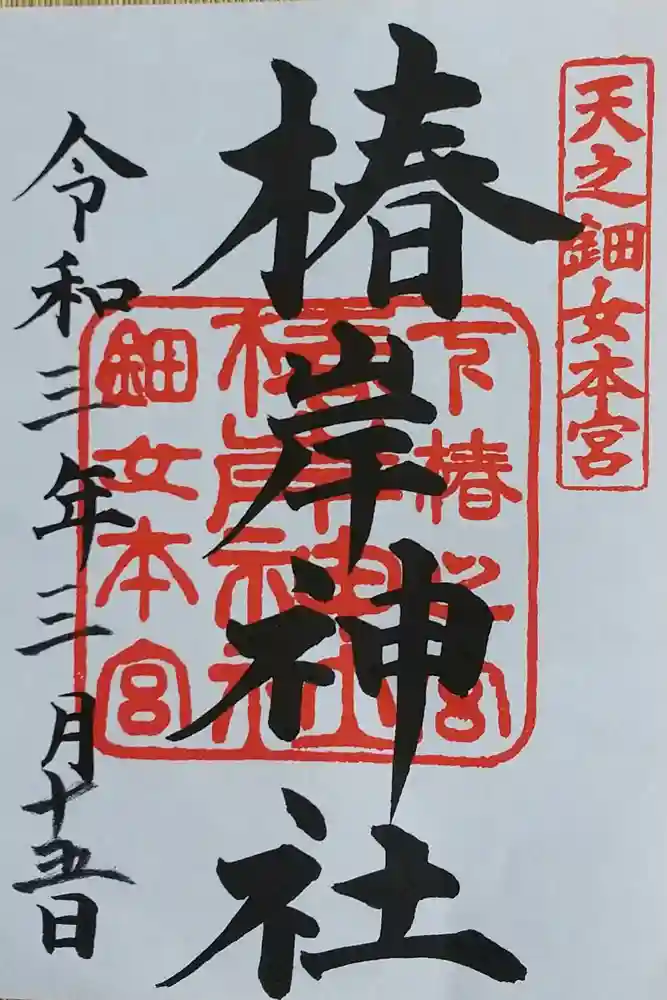 天之鈿女本宮
椿岸神社
下椿之宮
椿岸神社
鈿女本宮
令和三年三月十五日